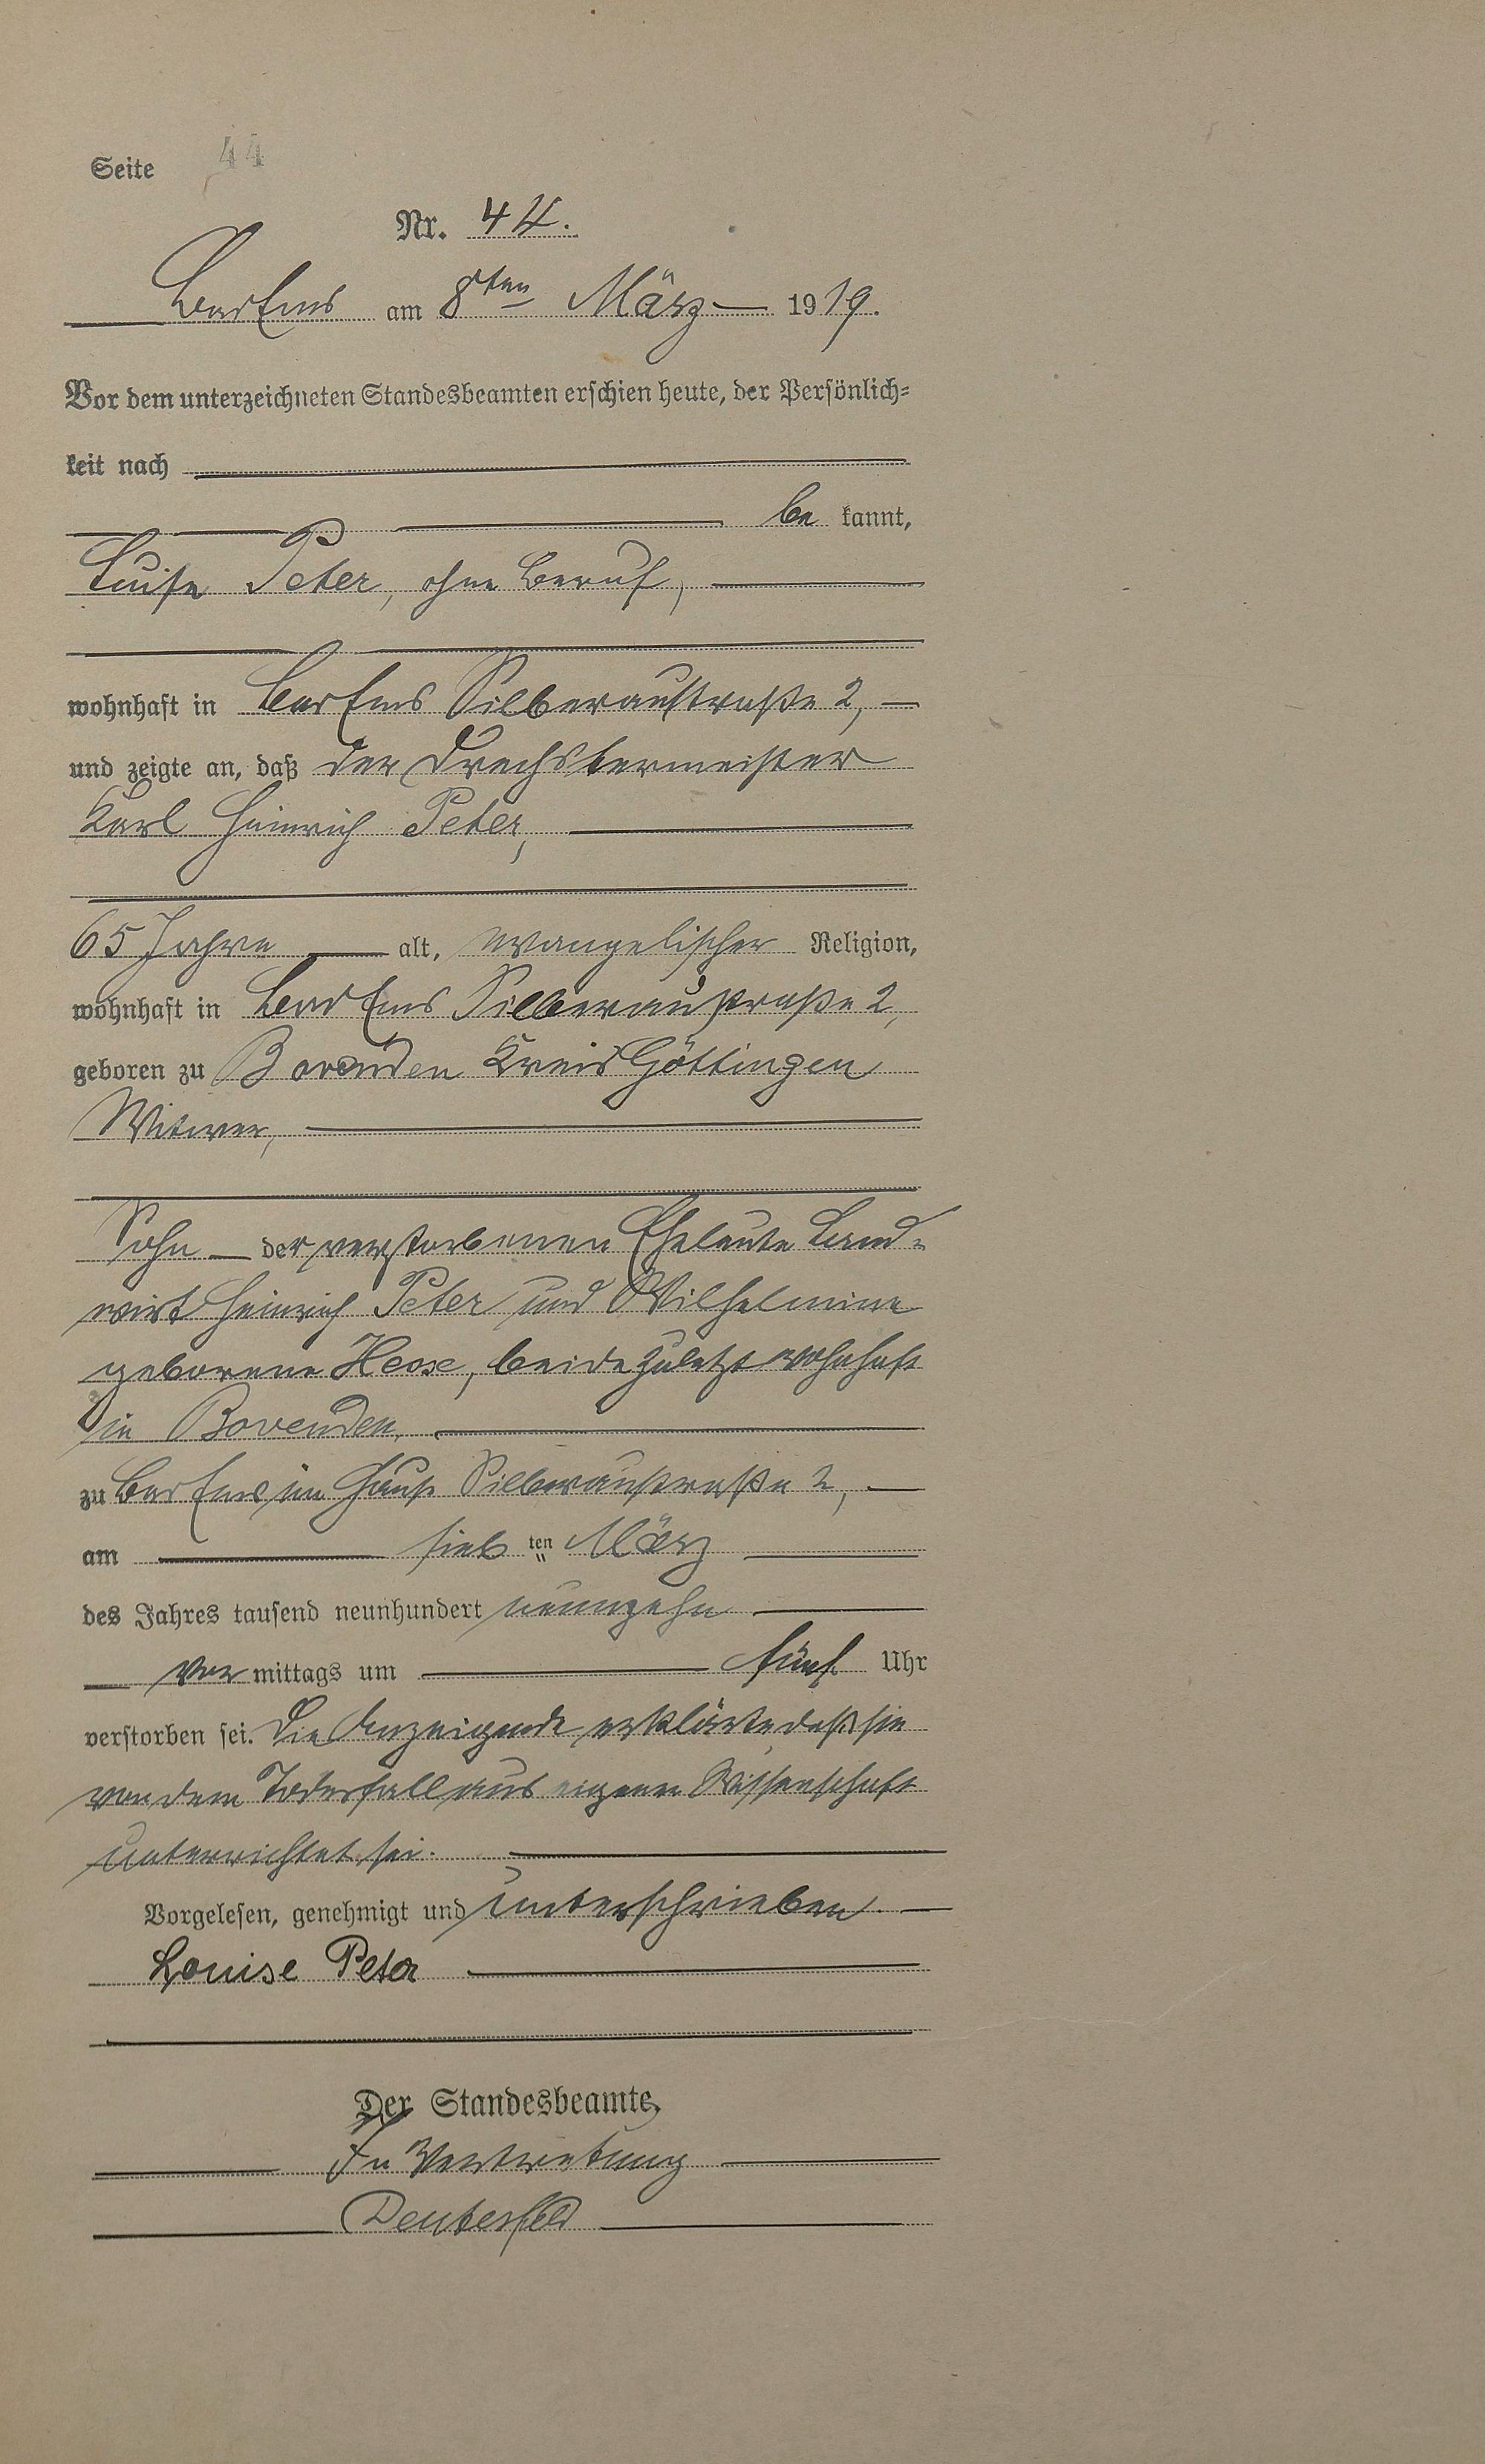 Seite 44
Nr. 44.
Bad Ems am 8ten März 1919.
Vor dem unterzeichneten Standesbeamten erschien heute, der Persönlich-
keit nach
be kannt,
Luise Peter, ohne Beruf,
wohnhaft in Bad Ems Silberaustraße 2,
und zeigte an, daß der Drechslermeister
Karl Heinrich Peter,
65 Jahre alt, evangelischer Religion,
wohnhaft in Bad Ems Silberaustraße 2,
geboren zu Bovenden Kreis Göttingen
Witwer,
Sohn der verstorbenen Eheleute Land-
wirt Heinrich Peter und Wilhelmine
geborene Hesse, beide zuletzt wohnhaft
in Bovenden,
zu Bad Ems im Hause Silberaustraße 2,
am sieb ten März
des Jahres tausend neunhundert neunzehn
vor mittags um fünf Uhr
verstorben sei. Die Anzeigende erklärte, daß sie
von dem Todesfall aus eigener Wissenschaft
unterrichtet sei.
Vorgelesen, genehmigt und unterschrieben.
Louise Peter
Der Standesbeamte,
In Vertretung